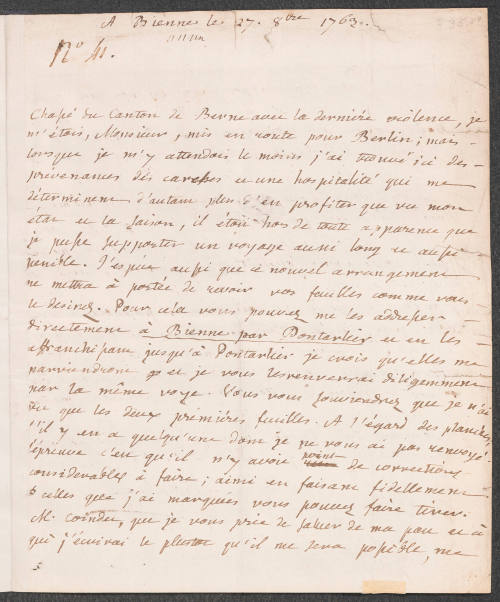 A Bienne le 27. 8bre 1763.
No 41.
Chassé du Canton de Berne avec la derniére violence, je
m'étois, Monsieur, mis en route pour Berlin; mais
lorsque je m'y attendois le moins j'ai trouvé ici des
prévenances des caresses et une hospitalité qui me
déterminent d'autant plus d'en profiter que vu mon
état et la saison, il étoit hors de toute apparence que
je pusse supporter un voyage aussi long et aussi
penible. J'espére aussi que ce nouvel arrangement
me mettra à portée de revoir vos feuilles comme vous
le desirez. Pour cela vous pouvez me les addresser
directement à Bienne par Pontarlier et en les
affranchissant jusqu'à Pontarlier je crois qu'elles me
parviendront et je vous les renverrai diligemment
par la même voye. Vous vous souviendrez que je n'ai
vu que les deux prémiéres feuilles. A l'égard des planches
s'il y en a quelqu'une dont je ne vous ai pas renvoyé
l'épreuve c'est qu'il n'y avoit point de corrections
considerables à faire; ainsi en faisant fidellement
celles que j'ai marquées vous pouvez faire tirer.
M. Coindet, que je vous prie de saluer de ma part et à
qui j'écrirai le plustot qu'il me sera possible, me